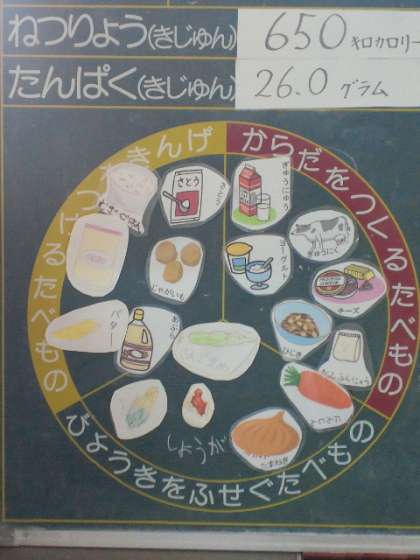 ねつりょう(きじゅん) 650 キロカロリー
たんぱく(きじゅん) 26.0 グラム
げんきをつけるたべもの
からだをつくるたべもの
びょうきをふせぐたべもの
さとう
さとう
ぎゅうにゅう
ぎゅうにく
ヨーグルト
チーズ
じゃがいも
バター
あぶら
ひじき
だっしふんにゅう
にんじん
しょうが
たまねぎ